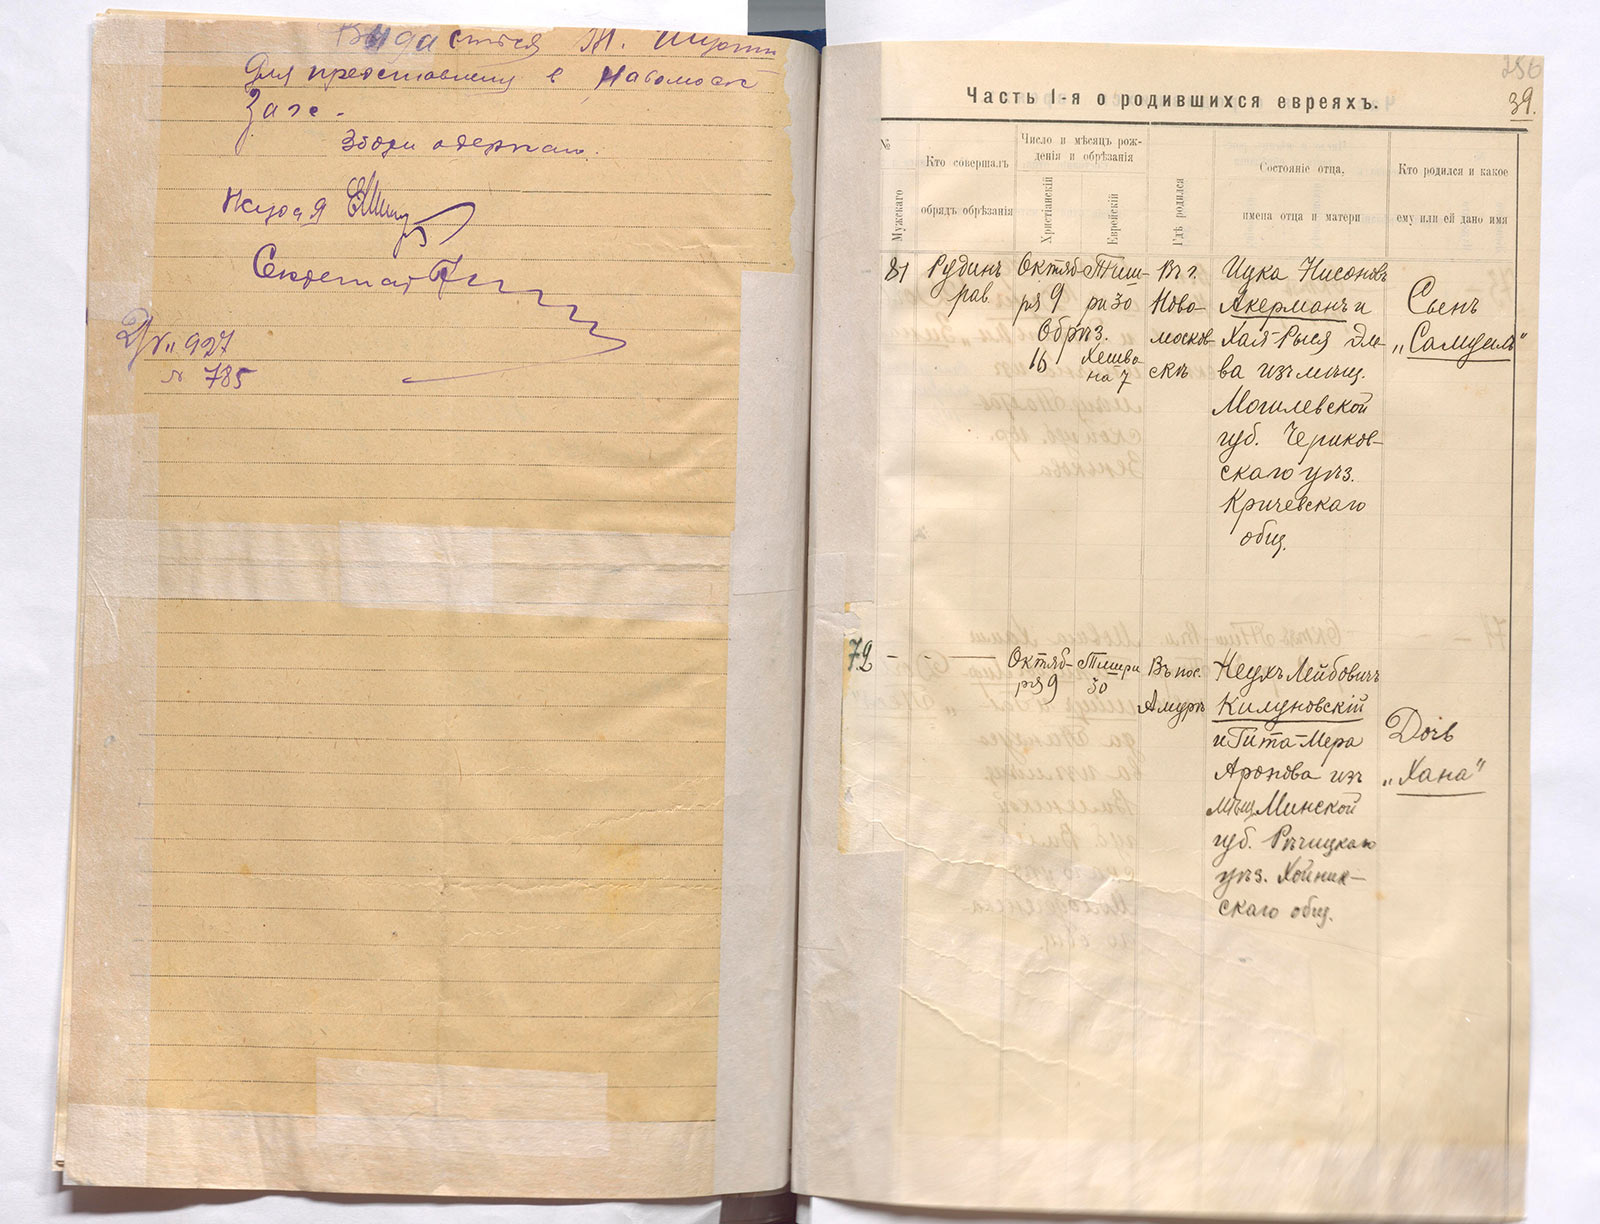 Видается т.
Для преоставлену в
Загс.
Збори одержан.
Секретар
№ 927
№ 785
39.
Часть I-я о родившихся евреяхъ.
№
Мужскаго
Кто совершалъ
обрядъ обрѣзанія
Число и мѣсяцъ рож-
денія и обрѣзанія
Христіанскій
Еврейскій
Гдѣ родился
Состояніе отца,
имена отца и матери
Кто родился и какое
ему или ей дано имя
81
Рудинъ
рав.
Октяб-
ря 9
Тиш-
ри 30
Обрѣз.
16
Хешва-
на 7
Въ г.
Ново-
москов-
скѣ
Ицка Нисоновъ
Акерманъ и
Хая-Рыся
ва изъ мѣщ.
Могилевской
губ. Чериков-
скаго уѣз.
Кричевскаго
общ.
Сынъ
„Самуилъ"
72 - - -
Октяб-
ря 9
Тишри
30
Въ пос.
Амурѣ
Неухъ Лейбовичъ
Климуновскій
и Гита-Мера
Аронова изъ
мѣщ Минской
губ. Рѣчицкаго
уѣз. Хойник-
скаго общ.
Дочь
„Хана"